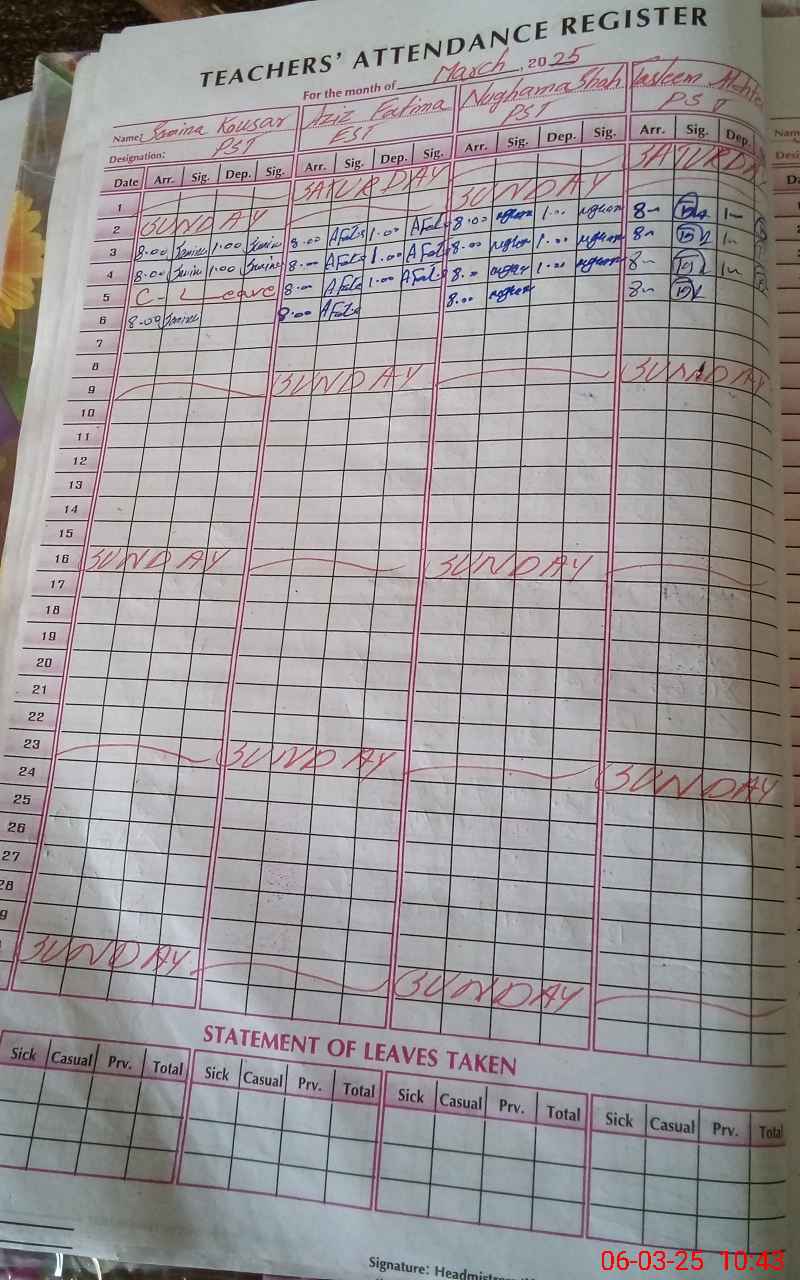 TEACHERS' ATTENDANCE REGISTER
For the month of March, 2025
Name: Samina Kousar Aziz Fatima Nughama Shah Tasleem
Designation: PST EST PST PST
Date Arr. Sig. Dep. Sig. Arr. Sig. Dep. Sig. Arr. Sig. Dep. Sig. Arr. Sig. Dep.
1 SATURDAY SATURDAY
2 SUNDAY SUNDAY
3 8.00 1.00 8.00 AFale 1.00 AFale 8.00 1.00 8 1
4 8.00 1.00 8.00 AFale 1.00 AFale 8.00 1.00 8 1
5 C-Leave 8.00 AFale 1.00 AFale 8.00 1.00 8 1
6 8.00 8.00 AFale 8.00 8
7
8
9 SUNDAY SUNDAY
10
11
12
13
14
15
16 SUNDAY SUNDAY
17
18
19
20
21
22
23 SUNDAY SUNDAY
24
25
26
27
28
9
SUNDAY SUNDAY
STATEMENT OF LEAVES TAKEN
Sick Casual Prv. Total Sick Casual Prv. Total Sick Casual Prv. Total Sick Casual Prv. Total
Signature:
06-03-25 10:43